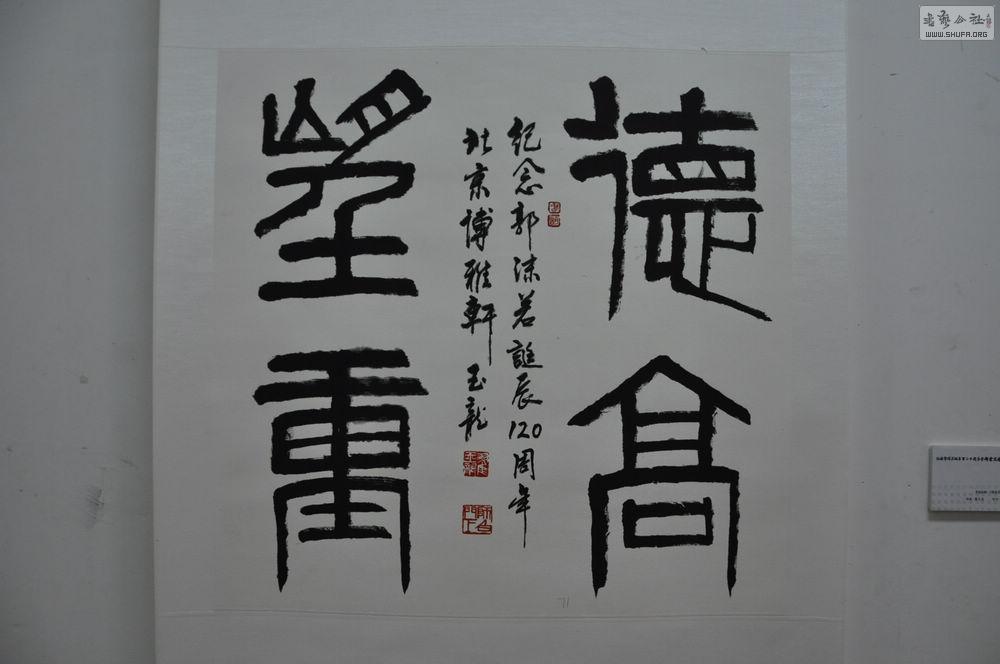 德高
望重
纪念郭沫若誕辰120周年
北京博雅軒 玉龍
书艺公社
WWW.SHUFA.ORG